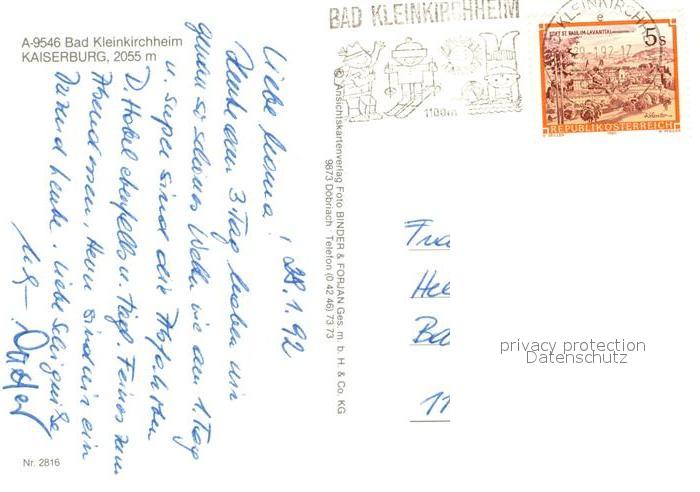 A-9546 Bad Kleinkirchheim
KAISERBURG, 2055 m
Liebe Mama! 28.1.92
Heute am 3. Tag haben wir
genau so schönes Wetter wie am 1. Tag
u. super sind die Abfahrten
D. Hotel ebenfalls u. tägl. Feines zum
Abendessen. Herr sind wir ein
heute. Liebe Skigrüße
Nr. 2816
© Ansichtskartenverlag Foto BINDER & FORJAN Ges. m. b. H. & Co. KG
9873 Döbriach Telefon (0 42 46) 73 73
BAD KLEINKIRCHHEIM
1100m
KLEINKIRCHH
e
29-1.92-17
STIFT ST. PAUL IM LAVANTTAL
5 S
REPUBLIK ÖSTERREICH
Fra
Hee
Ba
11
privacy protection
Datenschutz